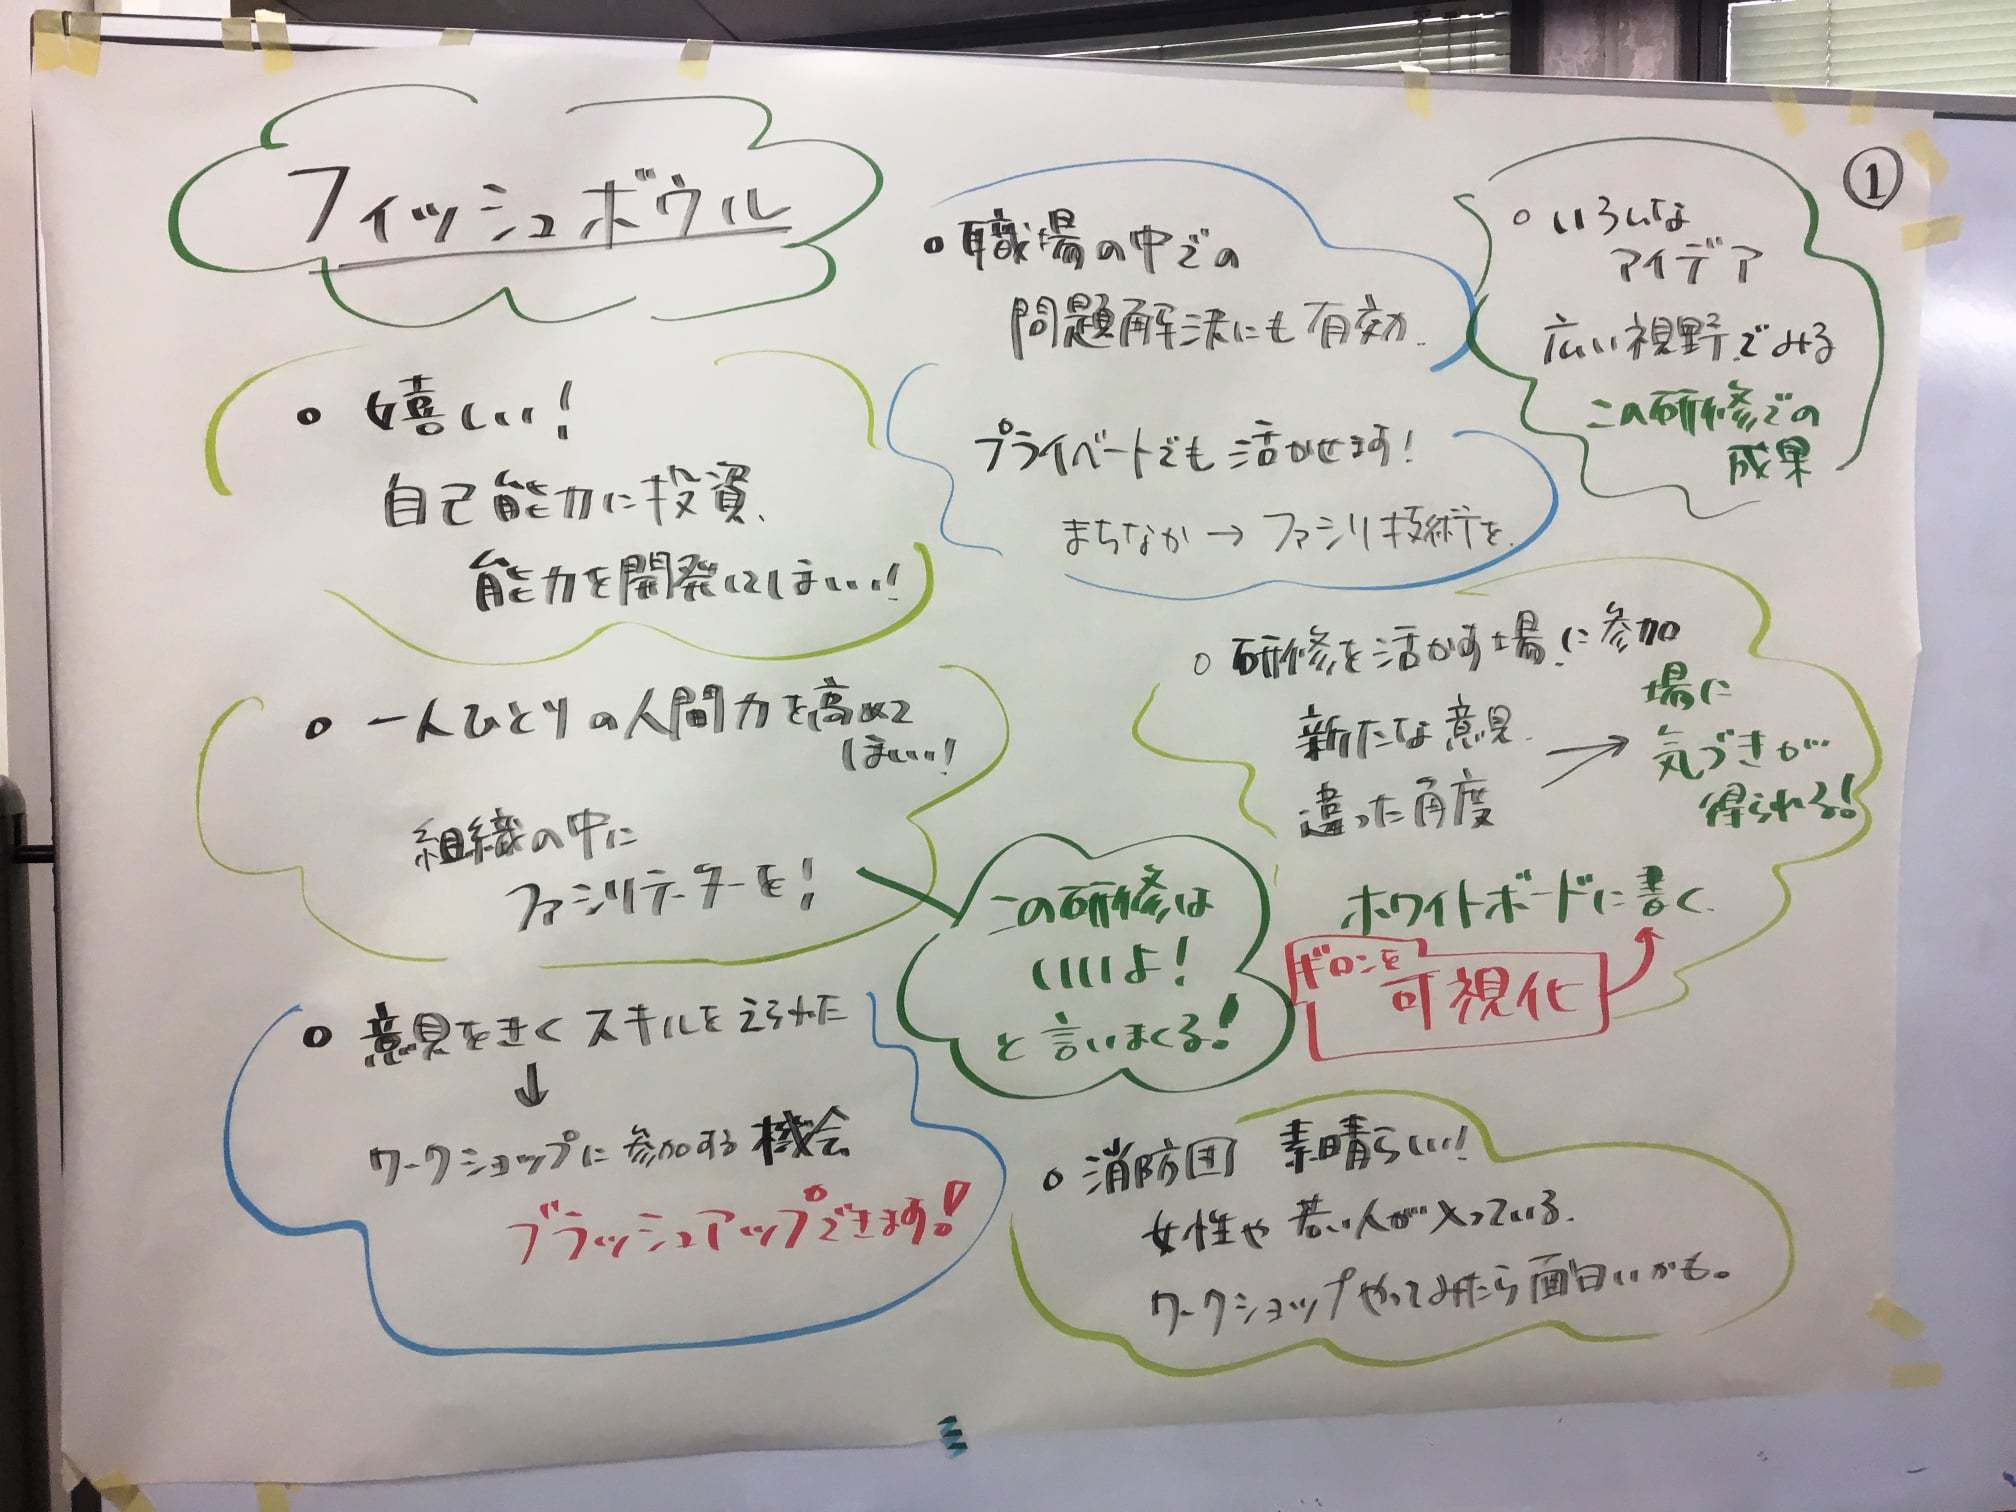 フィッシュボウル
①
• 嬉しい!
自己能力に投資、
能力を開発してほしい!
• 一人ひとりの人間力を高めて
ほしい!
組織の中に
ファシリテーターを!
この研修は
いいよ!
と言いまくる!
• 意見をきくスキルをえられた
↓
ワークショップに参加する機会
ブラッシュアップできます!
• 職場の中での
問題解決にも有効。
プライベートでも活かせます!
まちなか→ファシリ技術を。
• いろんな
アイデア
広い視野でみる
この研修での
成果
• 研修を活かす場に参加
新たな意見
違った角度
→
場に
気づきが…
得られる!
ホワイトボードに書く。
ギロンを
可視化
• 消防団 素晴らしい!
女性や若い人が入っている。
ワークショップやってみたら面白いかも。